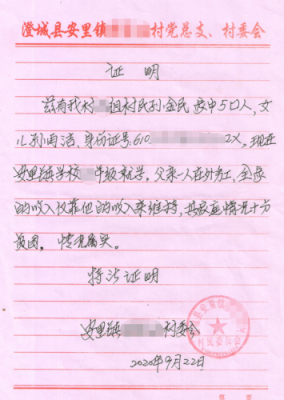 澄城县安里镇 村党总支、村委会
证明
兹有我村 组村民孙金民 家中5口人,女
儿孙雨洁、身份证号610 2X,现在
安里镇学校 年级就学,父亲一人在外打工,全家
的收入仅靠他的收入来维持,其家庭情况十分
贫困。情况属实。
特此证明
安里镇 村委会
2020年9月22日